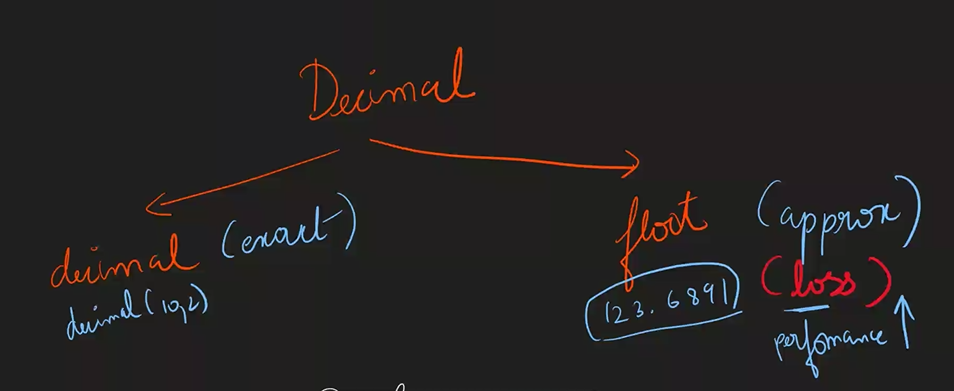 Decimal
decimal (exact)
decimal(10,2)
float (approx)
123.6891 (loss)
perfomance